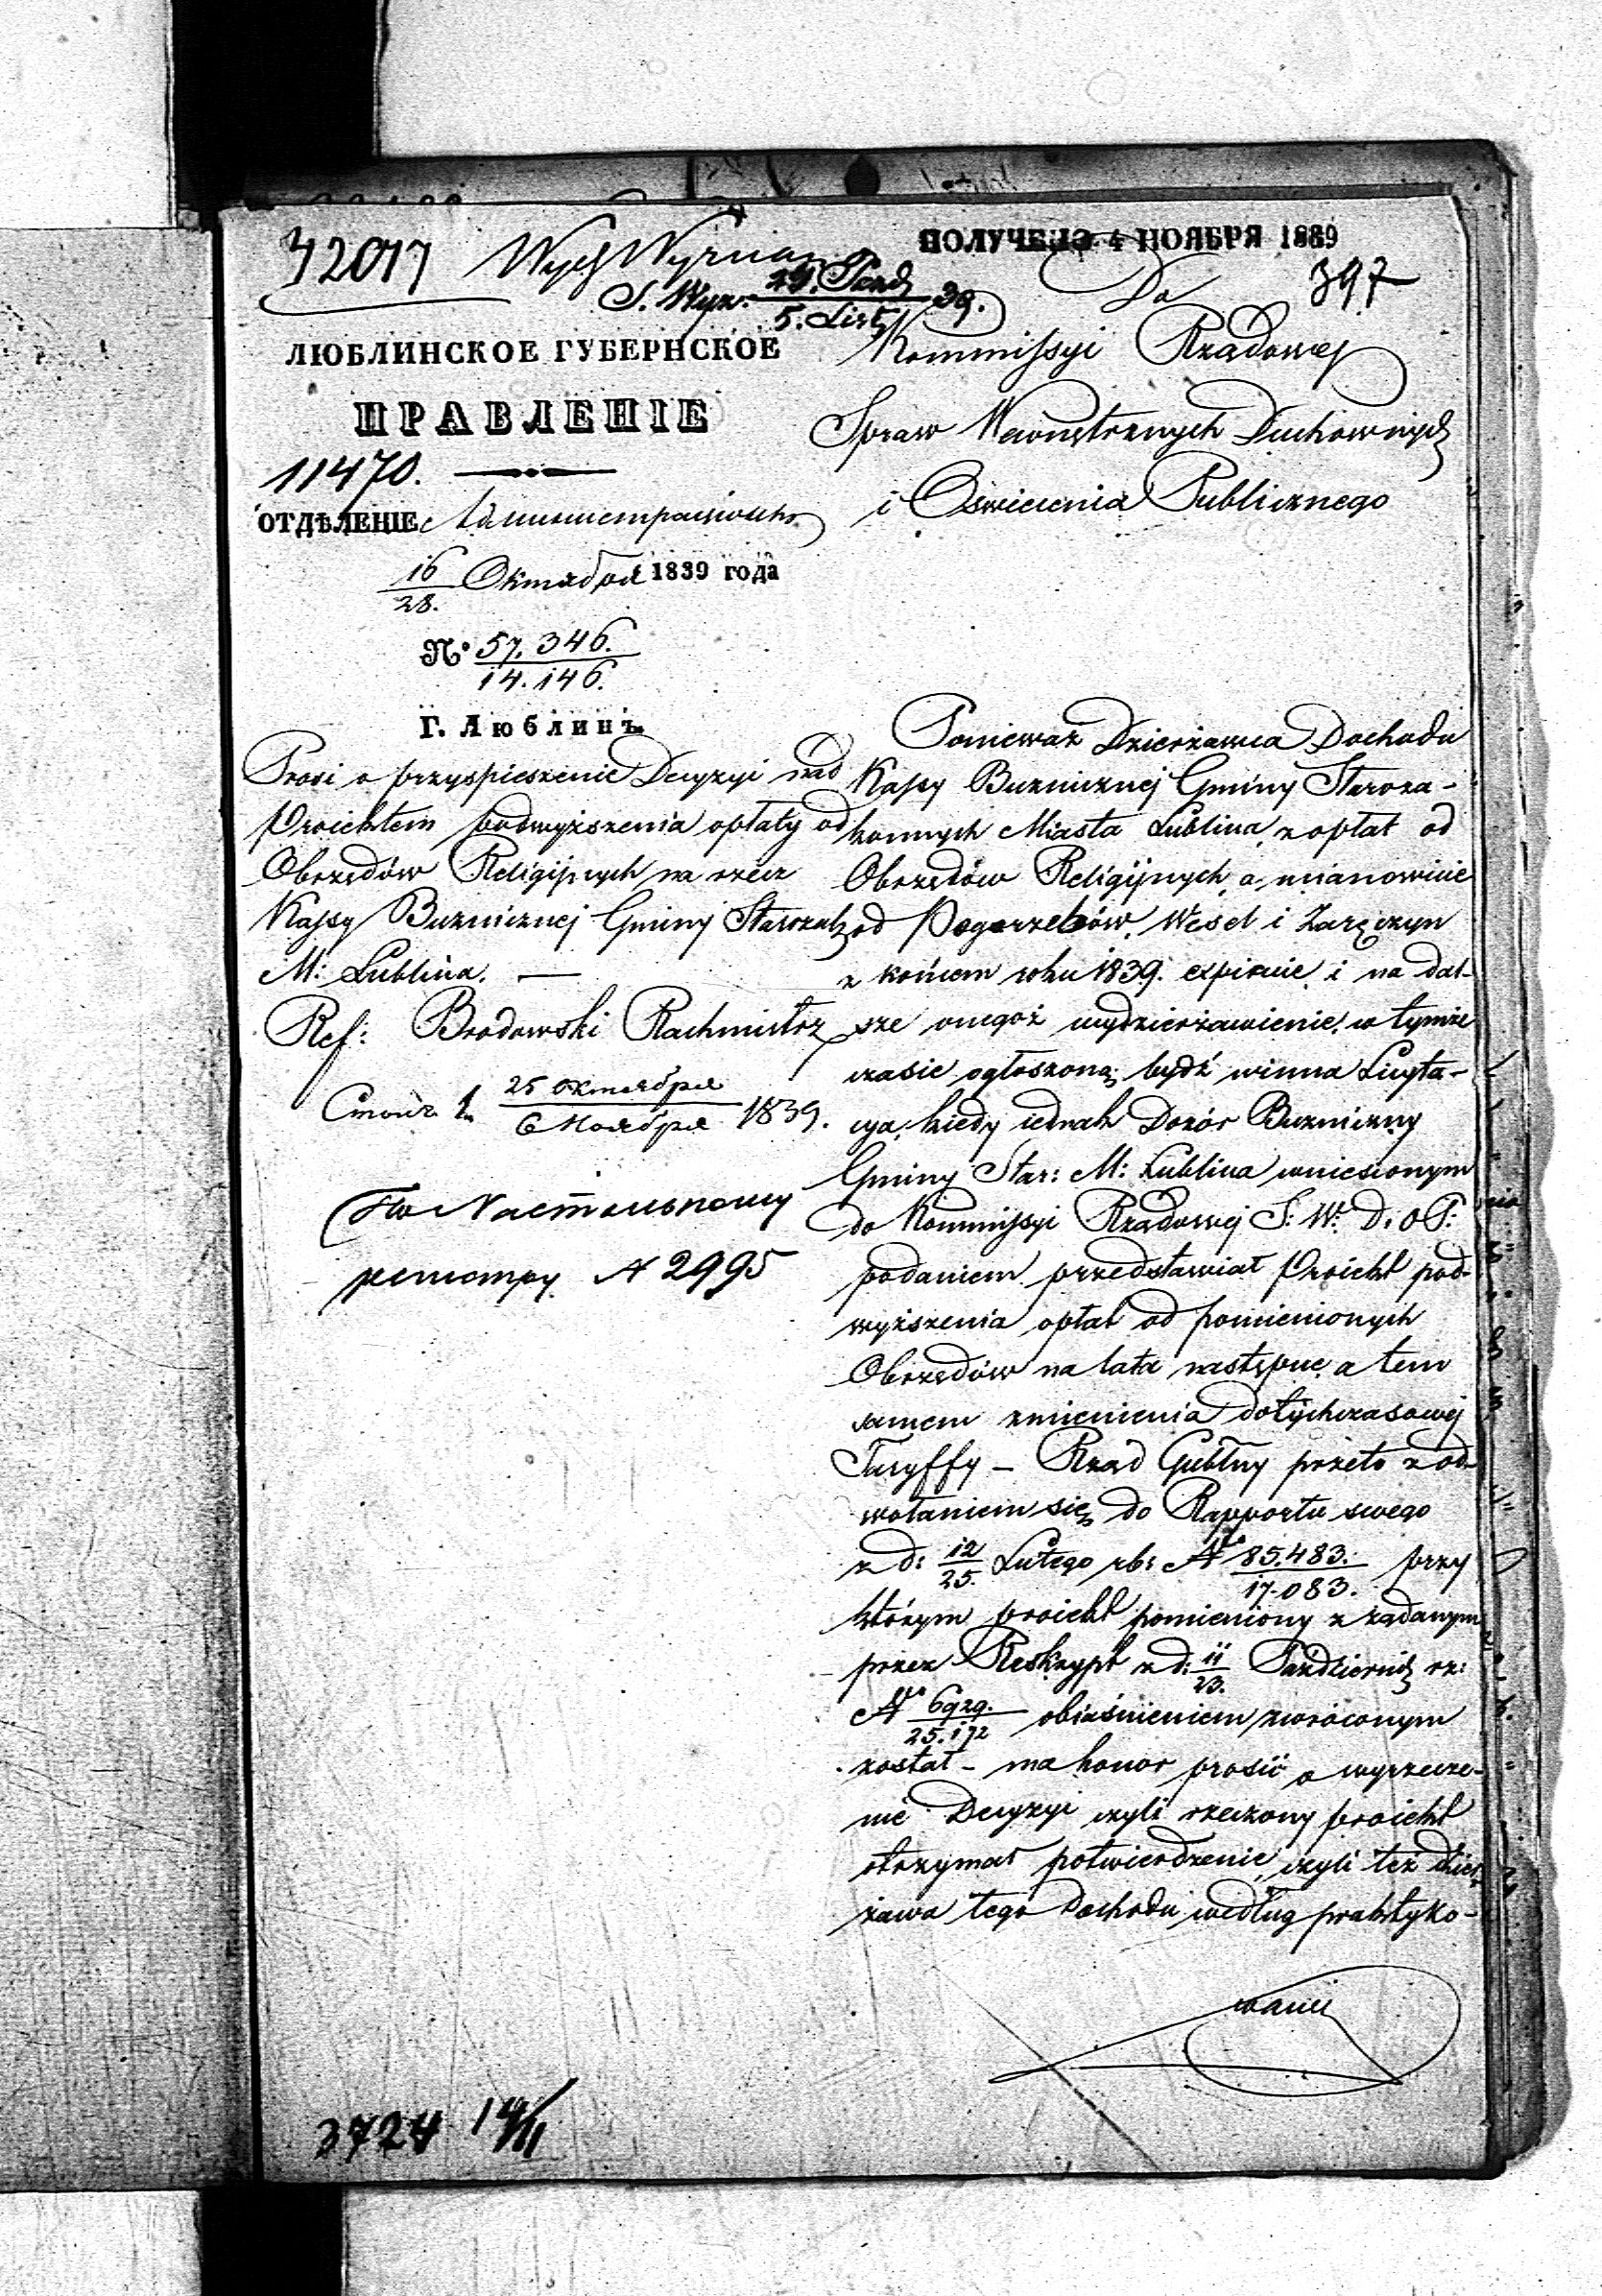 ПОЛУЧЕНО 4 НОЯБРЯ 1839
42017 Wydz Wyznań
S. Wyzn. 24. Paźd / 5. List 39.
397
ЛЮБЛИНСКОЕ ГУБЕРНСКОЕ
ПРАВЛЕНІЕ
11470.
ОТДѢЛЕНІЕ Административн.
16/28. Октября 1839 года
№ 57.346. / 14.146.
Г. Люблинъ.
Prosi o przyspieszenie Decyzyi nad
Proiektem podwyższenia opłaty od
Obrzędów Religijnych na rzecz
Kassy Buzniczney Gminy Starozak
M: Lublina. —
Ref: Brodowski Rachmistrz
Столъ 1. 25 октября / 6 Ноября 1839.
По Настольному
регистру № 2995
Do
Kommissyi Rządowey
Spraw Wewnętrznych Duchownych
i Oświecenia Publicznego
Ponieważ Dzierżawca Dochodu
Kassy Buznicznej Gminy Staroza-
konnych Miasta Lublina, z opłat od
Obrzędów Religijnych, a mianowicie
od Pogrzebów, Wesel i Zaręczyn
z końcem roku 1839. expiruie, i na dal-
sze onegoż wydzierżawienie, w tymże
czasie ogłoszoną bydź winna Licyta-
cya, kiedy iednak Dozór Buzniczny
Gminy Star: M: Lublina wniesionym
do Kommissyi Rządowej S: W: D. i O P:
podaniem przedstawiał Proiekt pod-
wyższenia opłat od pomienionych
Obrzędów na lata następne, a tem
samem zmienienia dotychczasowej
Taryffy — Rząd Gubłny przeto z od-
wołaniem się do Rapportu swego
z d: 12/25. Lutego rb: № 85.483. / 17.083. przy
którym proiekt pomieniony z żądanym
przez Reskrypt z d: 11/23. Październik rz:
№ 6929. / 25.172 obiaśnieniem zwróconym
został — ma honor prosić o wyrzecze-
nie Decyzyi czyli rzeczony proiekt
otrzymał potwierdzenie, czyli też dzier-
żawa tego Dochodu według praktyko-
wanej
3724 14/II